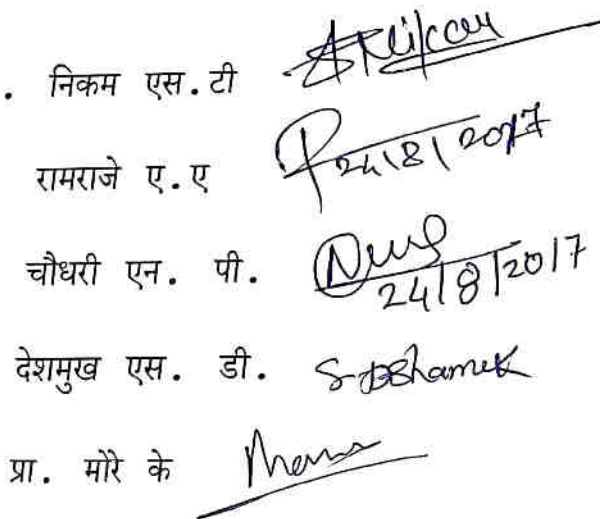 . निकम एस.टी
रामराजे ए.ए 24/8/2017
चौधरी एन. पी. 24/8/2017
देशमुख एस. डी.
प्रा. मोरे के